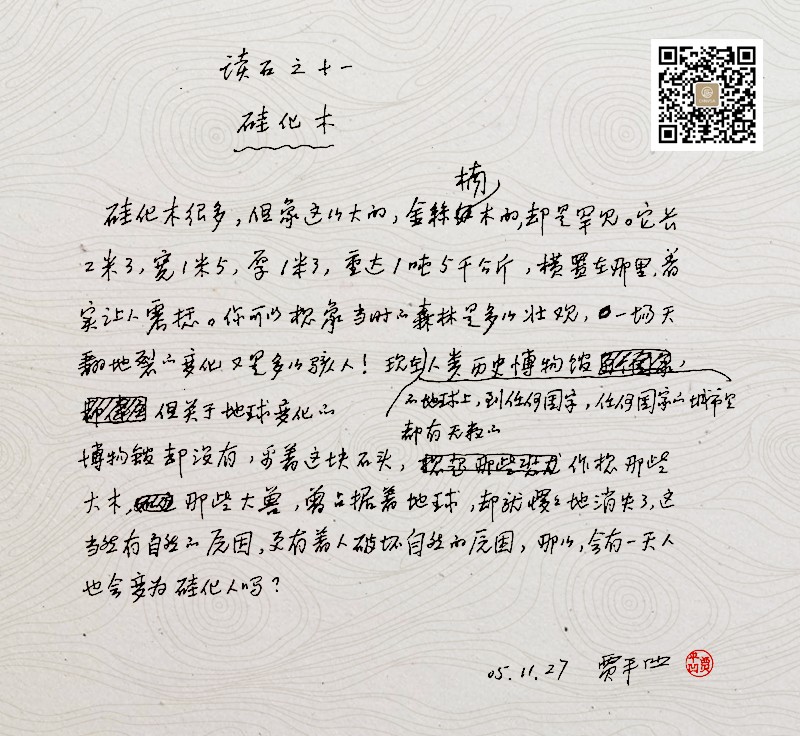 读石之十一
硅化木
楠
硅化木很多，但象这么大的，金丝木的，却是罕见。它长
2米3，宽1米5，厚1米3，重达1吨5千公斤，横置在那里，着
实让人震撼。你可以想象当时的森林是多么壮观，一场天
翻地裂的变化又是多么骇人！现在人类历史博物馆，
的地球上，到任何国家，任何国家的城市里
都有无数的
但关于地球变化的
博物馆却没有，看着这块石头，作想那些
大木，那些大兽，曾占据着地球，却就慢慢地消失了，这
当然有自然的原因，更有着人破坏自然的原因，那么，会有一天人
也会变为硅化人吗？
05.11.27 贾平凹
贾平凹